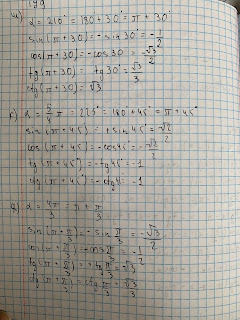 149
и) α = 210° = 180 + 30° = π + 30°
sin(π + 30) = -sin 30° = -1/2
cos(π + 30) = -cos 30 = -√3/2
tg(π + 30) = tg 30° = √3/3
ctg(π + 30) = √3
к) α = 5/4 π = 225° = 180° + 45° = π + 45°
sin(π + 45°) = + sin 45° = √2/2
cos(π + 45°) = -cos 45° = -√2/2
tg(π + 45°) = -tg 45° = -1
ctg(π + 45°) = -ctg 4 = -1
α = 4π/3 = π + π/3
sin(π + π/3) = -sin π/3 = -√3/2
cos(π + π/3) = -cos π/3 =
tg(π + π/3) = +tg π/3 = √3
ctg(π + π/3) = ctg π/3 = √3/3